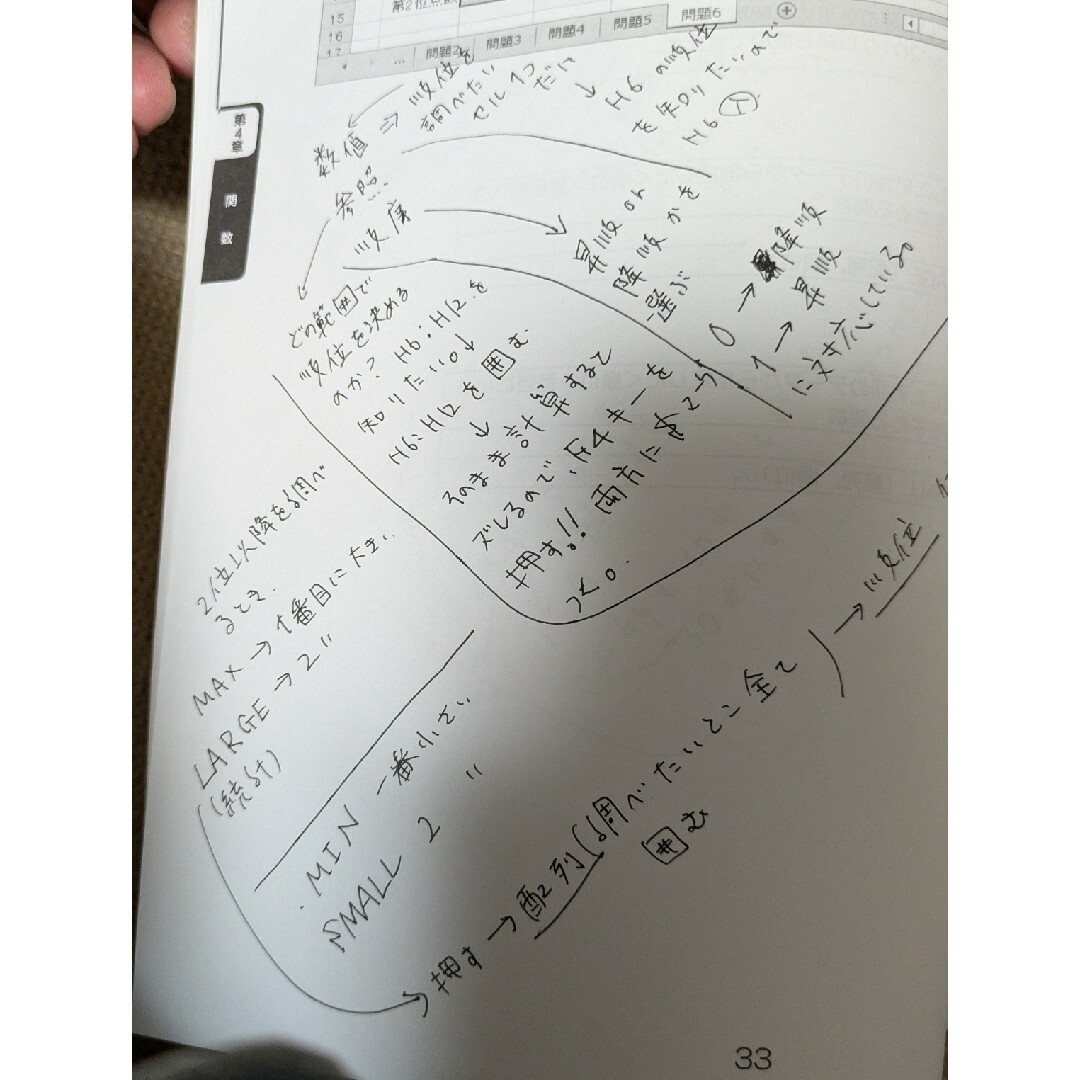 第2位点数
15
16
17
... 問題2 問題3 問題4 問題5 問題6
第4章
関数
数値 ⇒ 順位を
調べたい
セル1つ
だけ
↓
H6 の順位
を知りたいので
H6 入
参照
順序
昇順or
降順かを
選ぶ
0 → 降順
1 → 昇順
に対応している。
どの範囲で
順位を決める
のか? H6:H12を
知りたい。↓
H6:H12を囲む
↓
そのまま計算すると
ズレるので、F4キーを
押す!! 両方に$マーク
つく。
2位以降を調べ
るとき、
MAX → 1番目に大きい
LARGE → 2 〃
(統計)
・MIN 一番小さい
SMALL 2 〃
押す → 配列(調べたいとこ全て
囲む
) → 順位
33